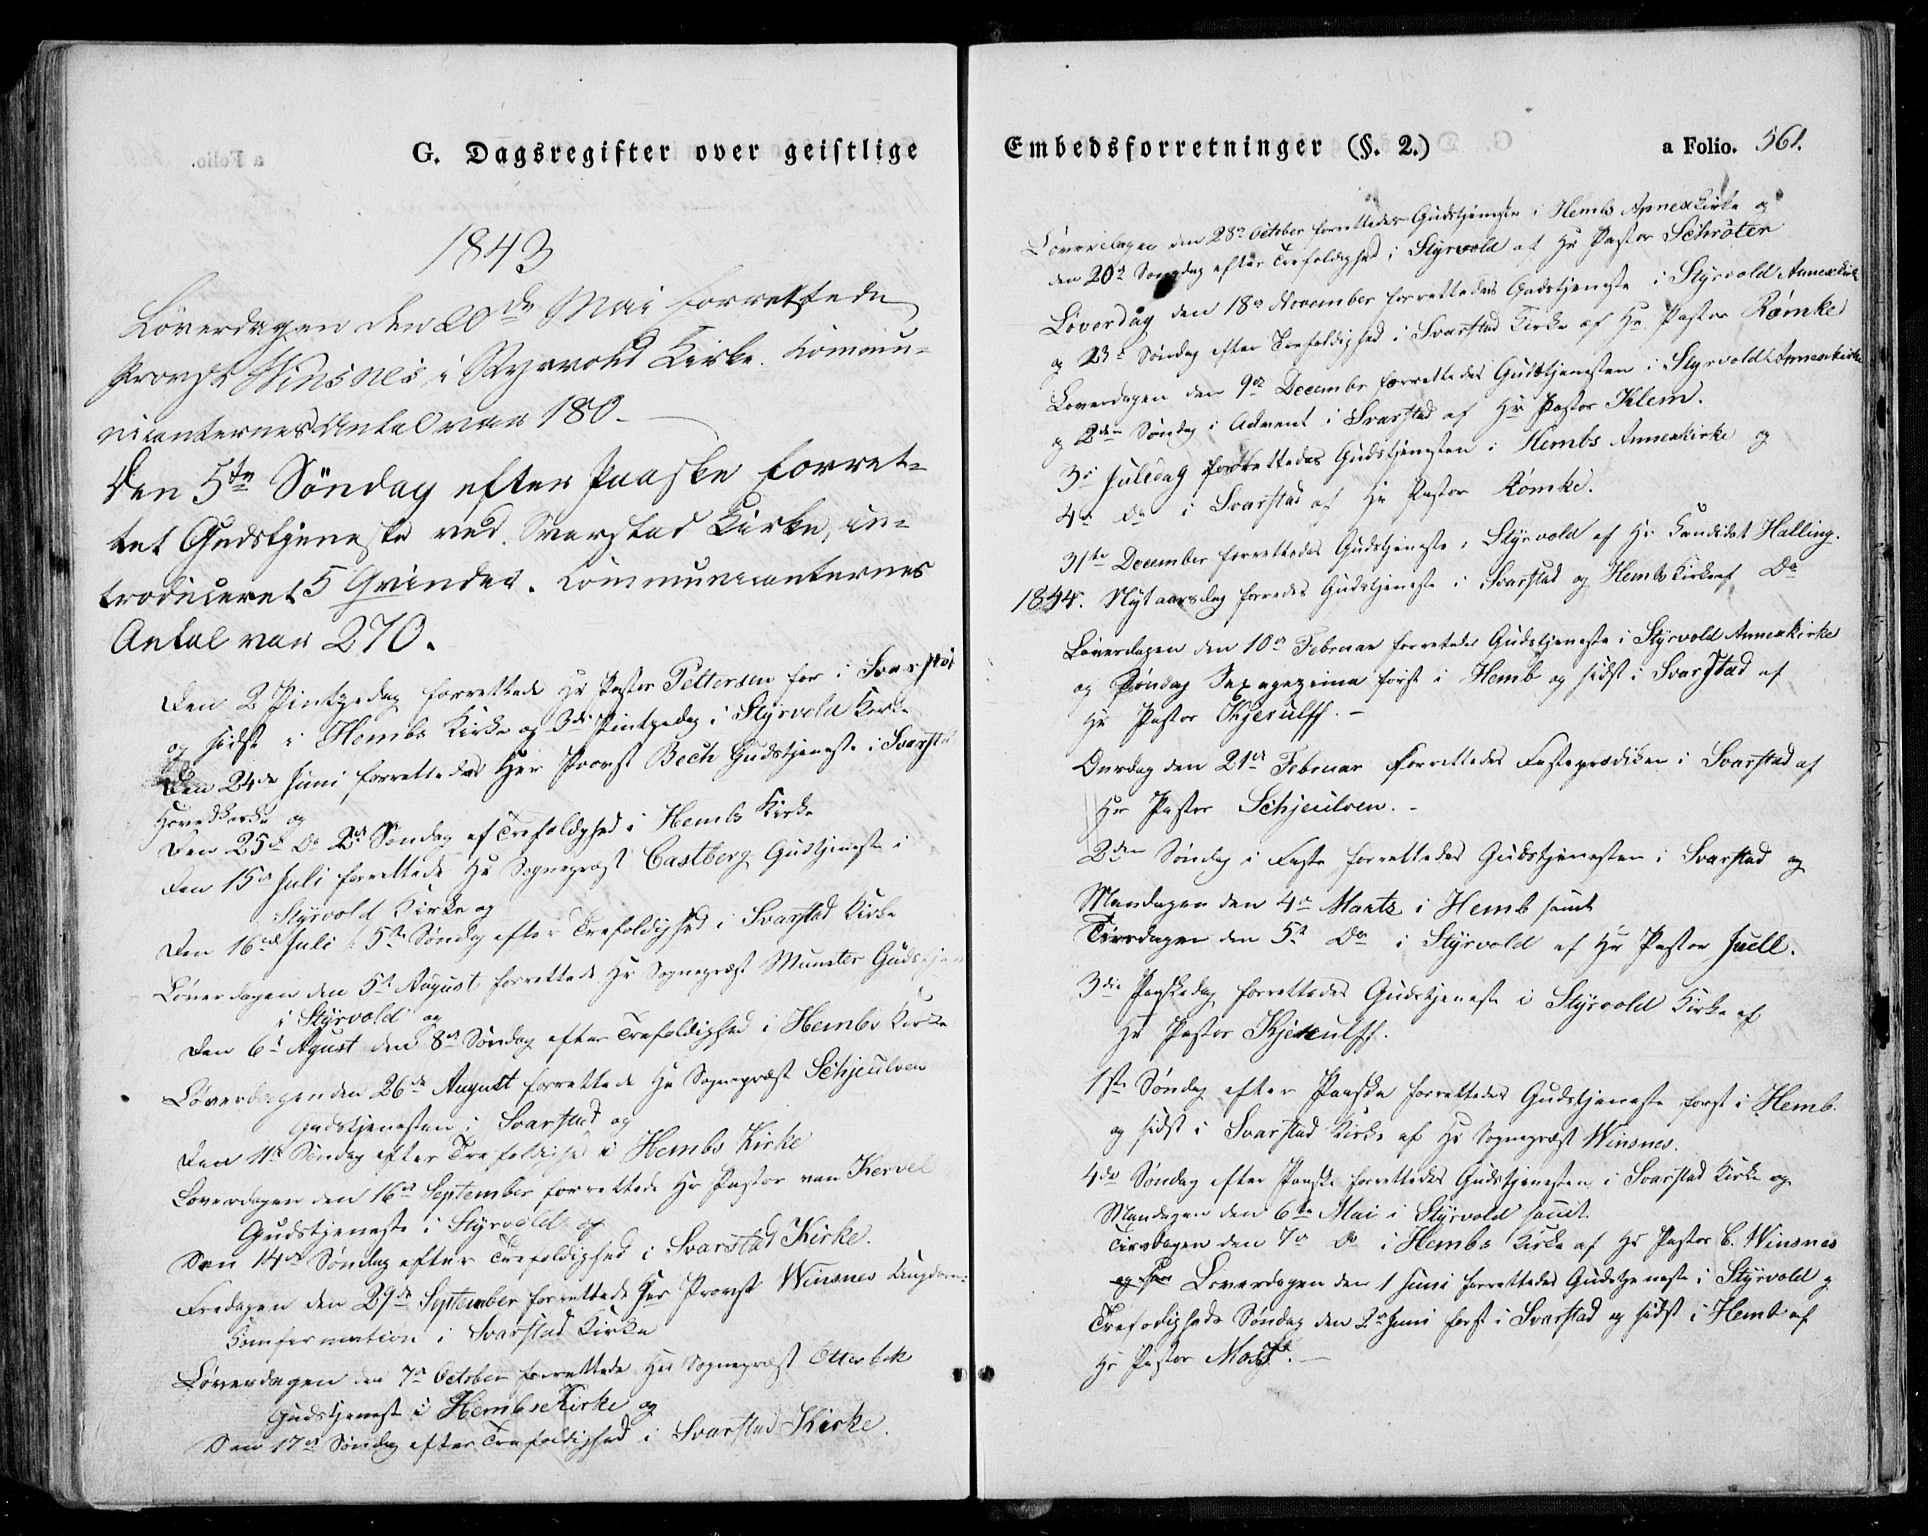 G. Dagsregister over geistlige
1843
Løverdagen den 20de Mai forrettede
Provst Winsnes i Styrvold Kirke. Commu-
nicanternes Antal var 180.
Den 5te Söndag efter Paaske forret-
tet Gudstjeneste ved Svarstad Kirke, in-
troduceret 5 Qvinder. Communicanternes
Antal var 270.
Den 2 Pintzedag forrettede Hr Pastor Pettersen før i Svarstad
og sidst i Hembs Kirke og 3die Pintzedag i Styrvold Kirke
Den 24de Juni forrettedes Herr Provst Bech Gudstjeneste i Svarstad
Hovedkirke og
Den 25de Do 2d Søndag ef Trefoldighed i Hembs Kirke
Den 15de Juli forrettede Hr Sognepræst Castberg Gudstjeneste i
Styrvold Kirke og
Den 16de Juli 5te Søndag efter Trefoldighed i Svarstad Kirke
Løverdagen den 5te August forrettede Hr Sognepræst Munster
i Styrvold og
Den 6te Agust den 8de Søndag efter Trefoldighed i Hembs Kirke
Løverdagen den 26de August forrettede Hr Sognepræst Schjeulven
Gudstjenesten i Svarstad og
Den 11te Søndag efter Trefoldighed i Hembs Kirke
Løverdagen den 16de September forrettede Hr Pastor van Kervel
Gudstjeneste i Styrvold og
Den 14de Søndag efter Trefoldighed i Svarstad Kirke.
Fredagen den 29de September forrettede Her Provst Winsnes
Comfermation i Svarstad Kirke
Løverdagen den 7de October forrettede Her Sognepræst Otterbek
Gudstjenest i Hembs Kirke og
Den 17de Søndag efter Trefoldighed i Svarstad Kirke.
Embedsforretninger (§. 2.)
a Folio. 561.
Løverdagen den 28de October forrettedes Gudstjeneste i Hembs Annexkirke og
den 20de Søndag efter Trefoldighed i Styrvold af Hr Pastor Schrøter
Løverdag den 18de November forrettedes Gudstjeneste i Styrvold Annexkirke
og 23de Søndag efter Trefoldighed i Svarstad Kirke af Hr Pastor Rømke
Løverdagen den 9de Decembr forrettedes Gudstjenesten i Styrvolds Annexkirke
og 2den Søndag i Advent i Svarstad af Hr Pastor Klem.
3de Juledag forrettedes Gudstjenesten i Hembs Annexkirke og
4de Do i Svarstad af Hr Pastor Rømke.
31te December forrettedes Gudstjeneste i Styrvold af Hr Candidat Halling.
1844. Nytaarsdag forredes Gudstjeneste i Svarstad og Hembs Kirke af Do
Løverdagen den 10de Februar forretedes Gudstjeneste i Styrvold Annexkirke
og Søndag Sexagezima først i Hemb og sidst i Svarstad af
Hr Pastor Kjerulff. -
Onsdag den 21de Februar forrettedes Fasteprædiken i Svarstad af
Hr Pastor Schjeulven. -
2den Søndag i Faste forrettedes Gudstjenesten i Svarstad og
Mandagen den 4de Martz i Hemb samt
Tirsdagen den 5te Do i Styrvold af Hr Pastor Juell.
3die Paaskedag forrettedes Gudstjeneste i Styrvold Kirke af
Hr Pastor Kjerulff.
1ste Søndag efter Paaske forrettedes Gudstjeneste først i Hemb
og sidst i Svarstad Kirke af Hr Sognepræst Winsnes.
4de Søndag efter Paaske forrettedes Gudstjenesten i Svarstad Kirke og
Mandagen den 6te Mai i Styrvold samt
Tirsdagen den 7de Do i Hembs Kirke af Hr Pastor B. Winsnes
Løverdagen den 1 Juni forrettedes Gudstjeneste i Styrvold og
Trefodigheds Søndag den 2de Juni først i Svarstad og sidst i Hemb af
Hr Pastor Mossf. -